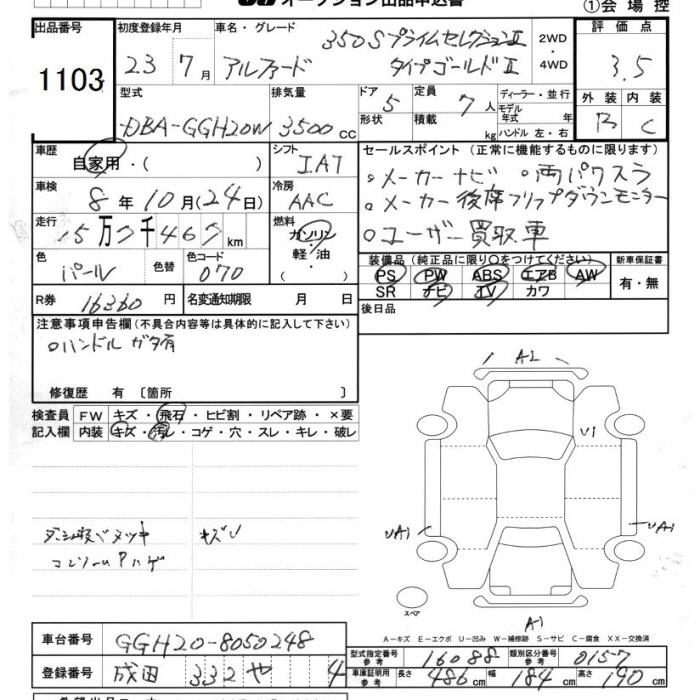 オークション出品申込書
①会場控
出品番号 1103
初度登録年月 23 7月
車名・グレード アルファード 350SプライムセレクションⅡ タイプゴールドⅡ
2WD・4WD
評価点 3.5
外装 B 内装 C
型式 DBA-GGH20W
排気量 3500cc
ドア 5 形状
定員 7人 積載 kg
ディーラー・並行
モデル年式 年
ハンドル 左・右
車歴 自家用・( )
シフト IAT
車検 8年10月(24日)
冷房 AAC
走行 15万7千467km
燃料 ガソリン・軽油・( )
色 パール 色替 色コード 070
R券 16360円
名変通知期限 月 日
セールスポイント(正常に機能するものに限ります)
○メーカーナビ ○両パワスラ
○メーカー後席フリップダウンモニター
○ユーザー買取車
装備品(純正品に限り○をつけてください)
PS PW ABS エアB AW
SR ナビ TV カワ
新車保証書 有・無
後日品
注意事項申告欄(不具合内容等は具体的に記入して下さい)
○ハンドルガタ有
修復歴 有〔箇所
検査員記入欄
FW キズ・飛石・ヒビ割・リペア跡・×要
内装 キズ・汚レ・コゲ・穴・スレ・キレ・破レ
キズリ
A2
U1
UA1
UA1
A1
スペア
A−キズ E−エクボ U−凹み W−補修跡 S−サビ C−腐食 XX−交換済
車台番号 GGH20-8050248
登録番号 成田 332 や 4
型式指定番号 参考 16088
類別区分番号 参考 0157
車庫証明用 参考 長さ 486cm 幅 184cm 高さ 190cm